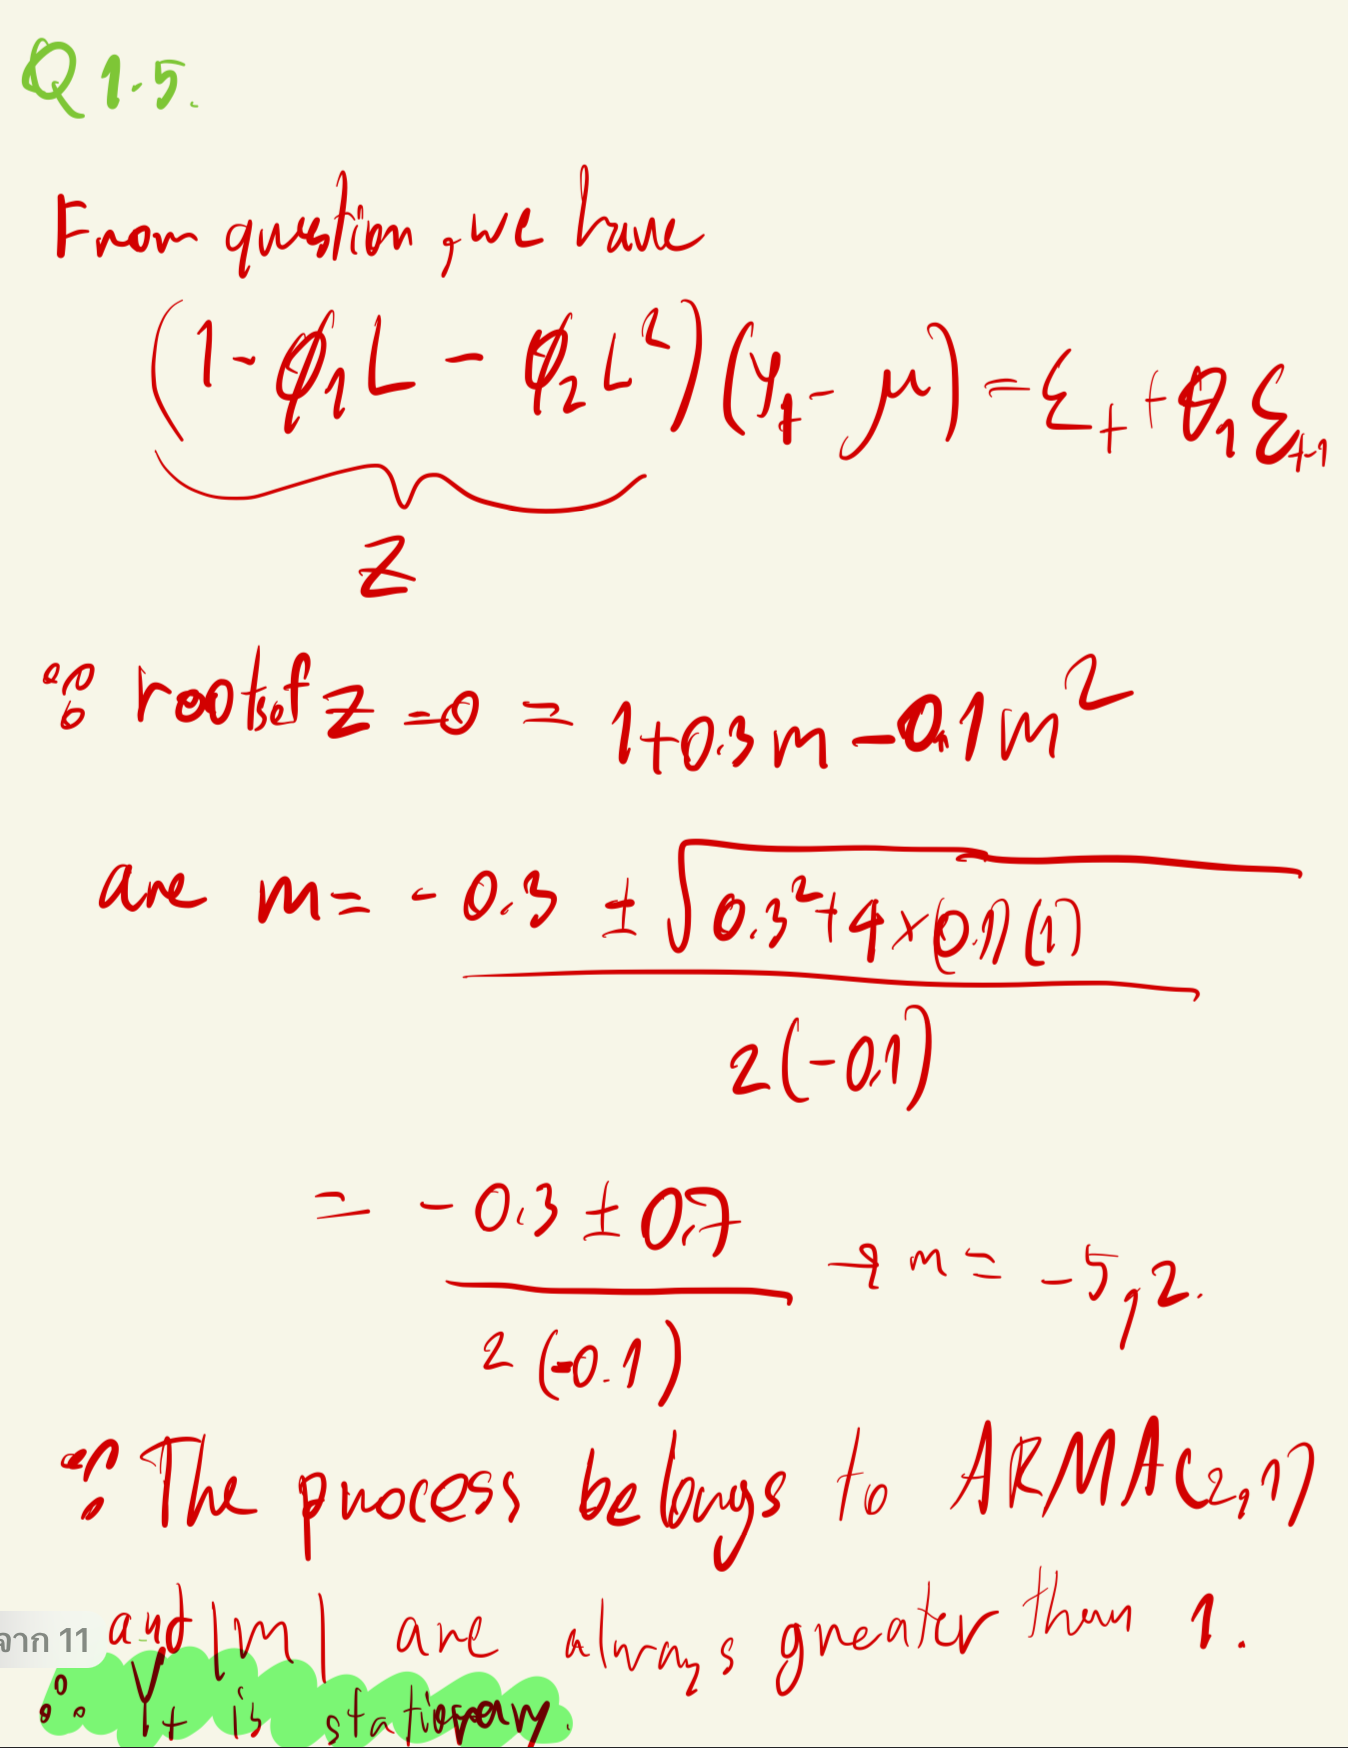 Q 1.5.
From question, we have
(1 - ϕ₁L - ϕ₂L²)(Yₜ - μ) = εₜ + θ₁εₜ₋₁
Z
∴ roots of Z = 0 = 1+0.3m - 0.1m²
are m = -0.3 ± √(0.3² + 4×(0.1)(1))
2(-0.1)
= -0.3 ± 0.7 → m = -5, 2.
2(-0.1)
∴ The process belongs to ARMA(2,1)
and |m| are always greater than 1.
จาก 11
∴ Yₜ is stationary.